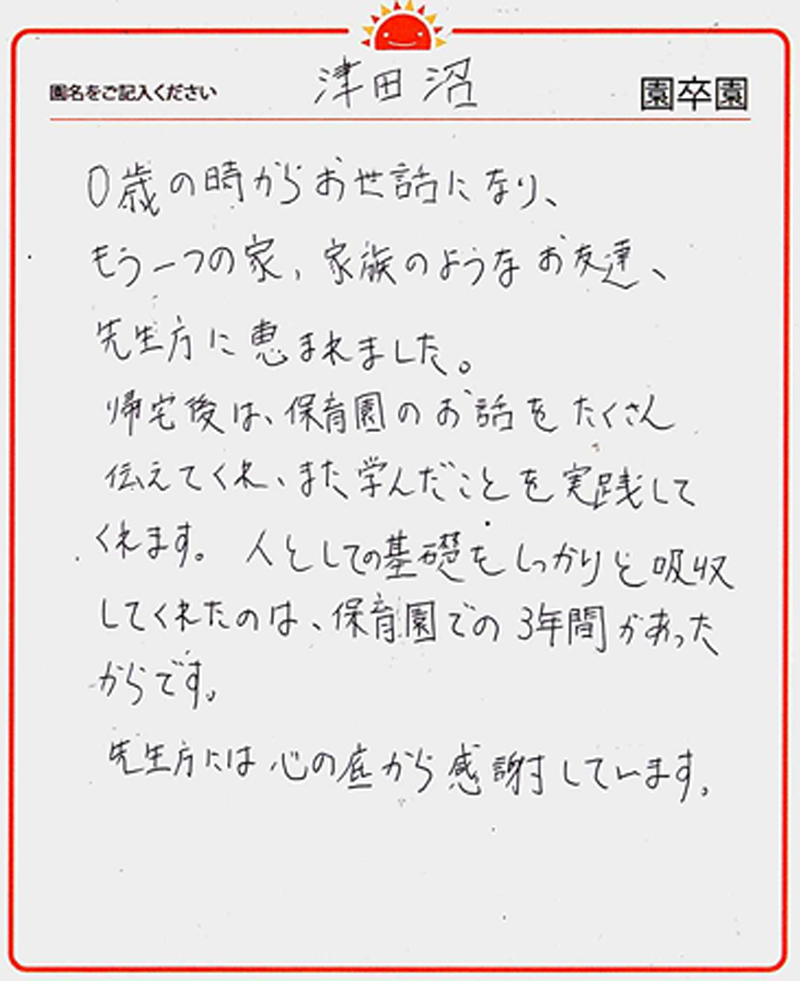 園名をご記入ください 津田沼 園卒園
0歳の時からお世話になり、
もう一つの家、家族のようなお友達、
先生方に恵まれました。
帰宅後は、保育園のお話をたくさん
伝えてくれ、また学んだことを実践して
くれます。人としての基礎をしっかりと吸収
してくれたのは、保育園での3年間があった
からです。
先生方には心の底から感謝しています。